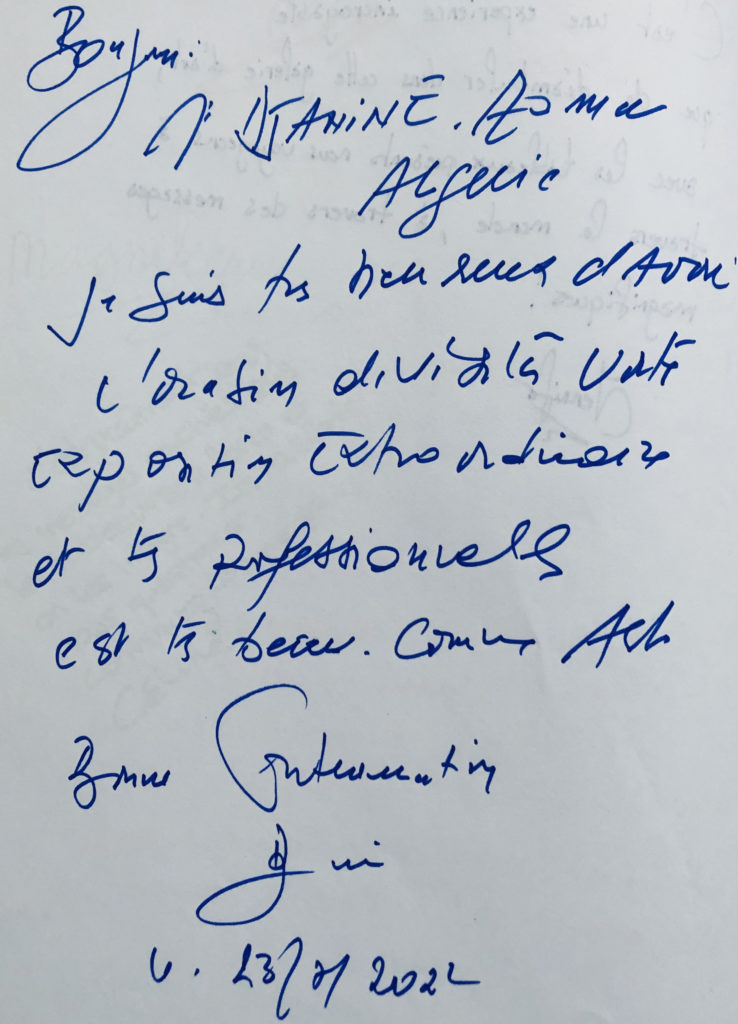 Bonjour.
DJAHINE. 
Algerie
Je suis très heureux d'Avoir
l'occasion de visité Votre
Exposition Extraordinaire
et très professionnelle
est très beau. Comme Art
Bonne Continuation
23/7/2022